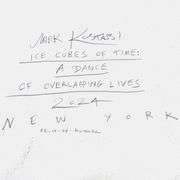 MARK KOSTABI
ICE CUBES OF TIME:
A DANCE
OF OVERLAPPING LIVES
2024
NEW YORK